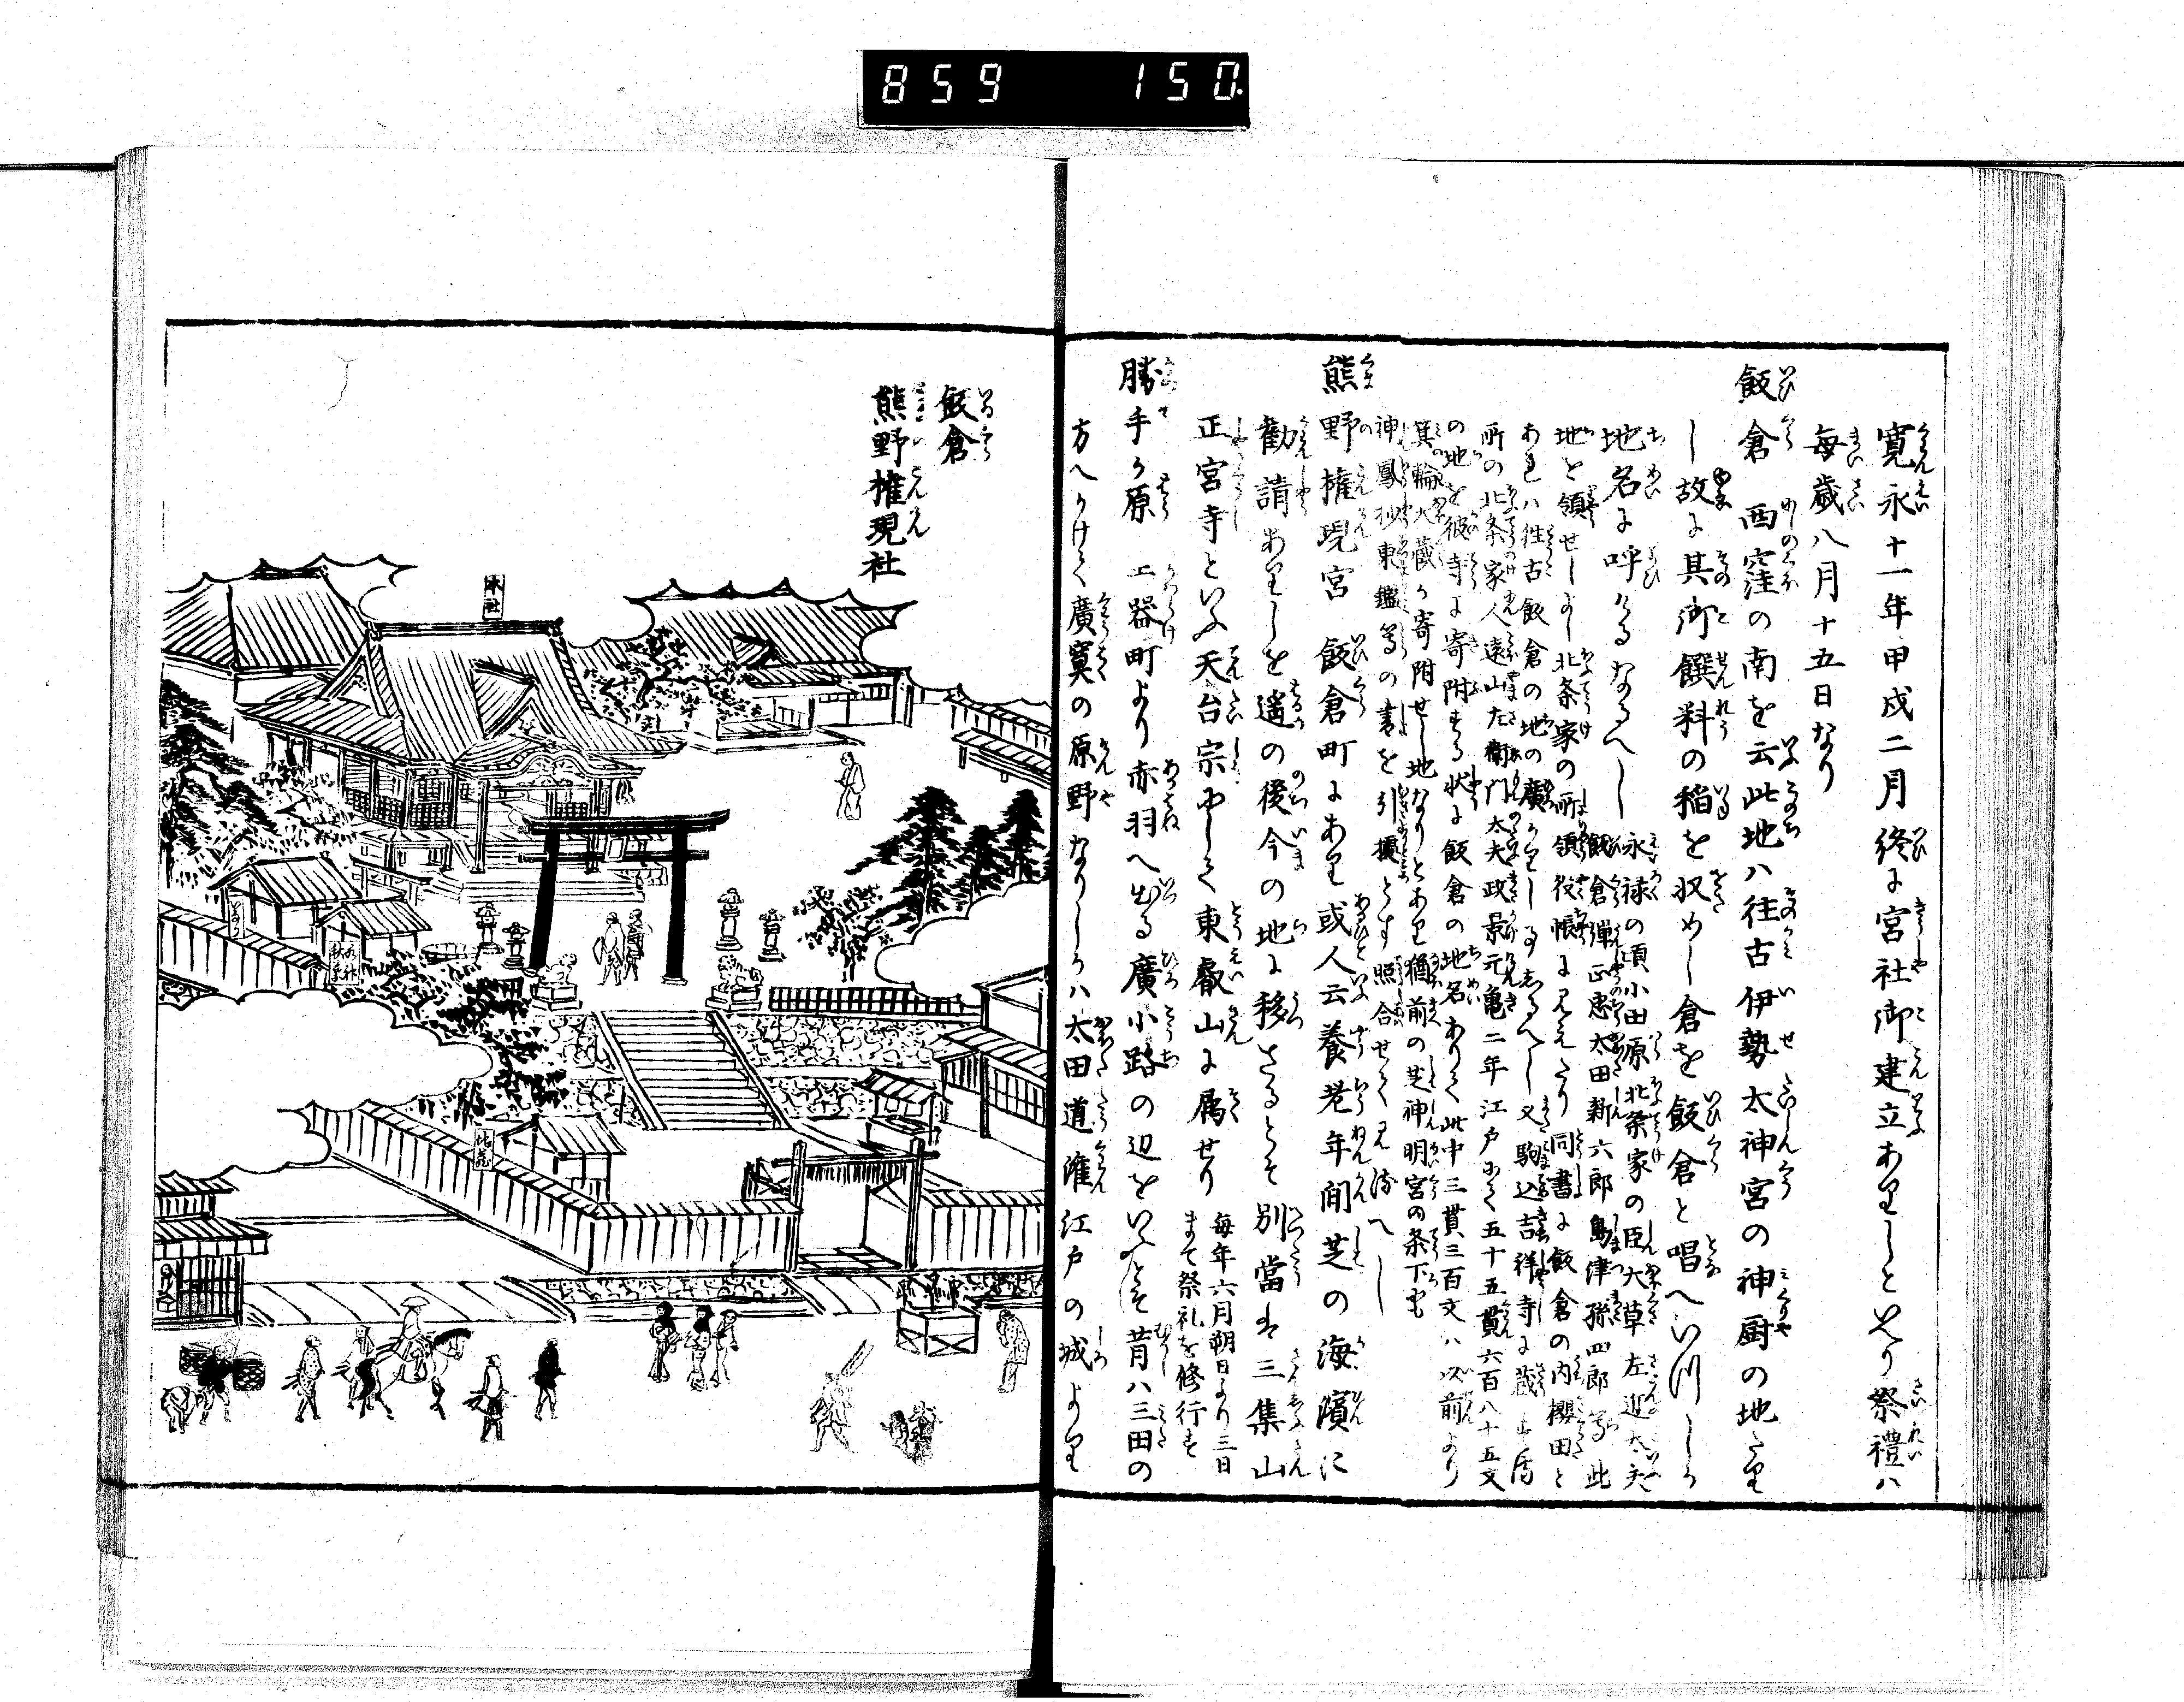 859 150.
寛永十一年甲戌二月終に宮社御建立ありしといへり祭禮ハ
毎歳八月十五日なり
飯倉 西窪の南を云此地ハ往古伊勢太神宮の神厨の地たり
し故に其御饌料の稲を収めし倉を飯倉と唱へいつしか
地名に呼けるなるへし
永禄の頃小田原北条家の臣大草左近太夫
飯倉弾正忠太田新六郎島津孫四郎等此
地を領せしよし北条家の所領役帳にみえたり同書に飯倉の内櫻田と
あるハ往古飯倉の地の廣かりし事しるへし又駒込吉祥寺に蔵する
所の北条家人遠山左衛門太夫政景元亀二年江戸にて五十五貫六百八十五文
の地を彼寺に寄附する状に飯倉の地名ありて此中三貫三百文ハ以前より
箕輪大蔵か寄附せし地なりとあり猶前の芝神明宮の条下に
神鳳抄東鑑等の書を引據とす照合せてみるへし
熊野権現宮 飯倉町にあり或人云養老年間芝の海濱に
勧請ありしを遥の後今の地に移さるとそ別當は三集山
正宮寺といふ天台宗にして東叡山に属せり
毎年六月朔日より三日
まて祭礼を修行す
勝手ヶ原 土器町より赤羽へ出る廣小路の辺をいふとそ昔ハ三田の
方へかけて廣寞の原野なりしか八太田道潅江戸の城より
飯倉
熊野権現社
本社
いなり
水神
秋葉
地蔵